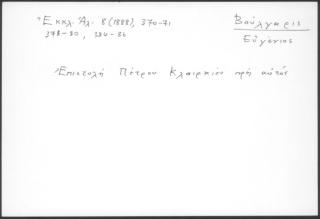 Ἐκκλ. Ἀλ. 8 (1888), 370-71
378-80, 384-86
Βούλγαρις
Εὐγένιος
Ἐπιστολὴ Πέτρου Κλαιρκίου πρὸς αὐτόν